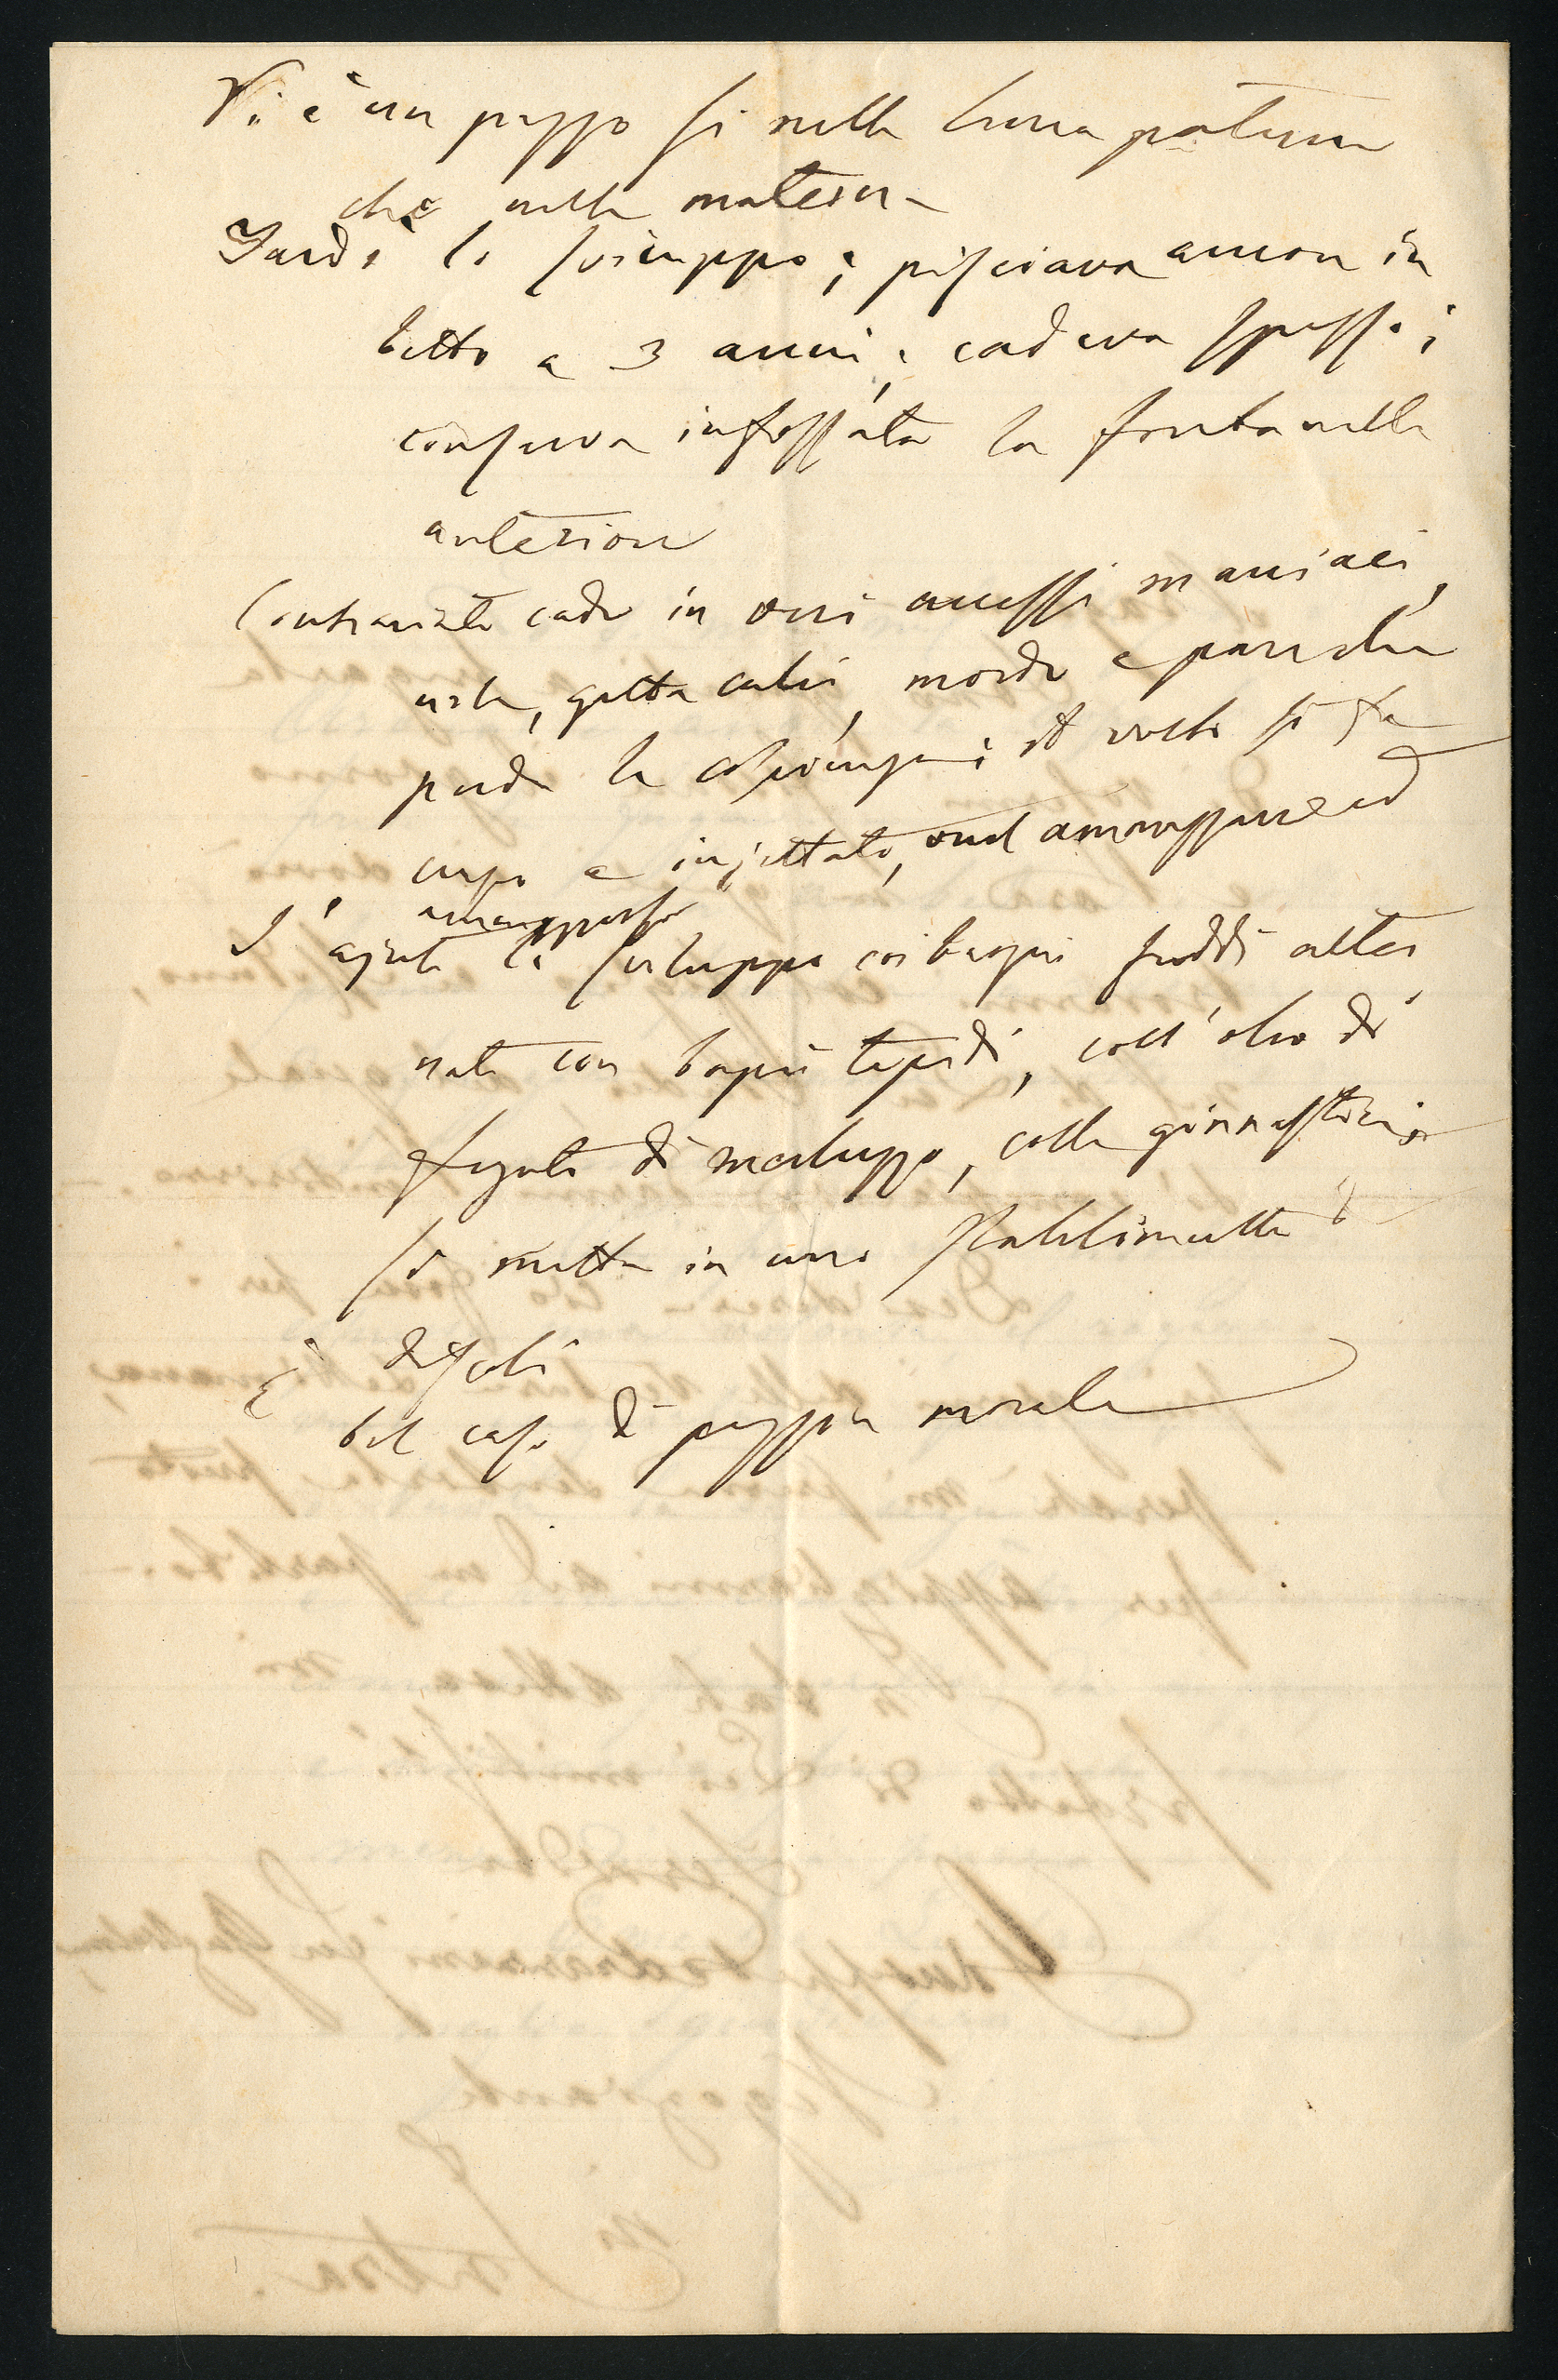 Vi è un pazzo si nella linea paterna
che nella materna
Tardò lo sviluppo; pisciava ancora in
letto a 3 anni; cadeva spesso;
conserva infossata la fontanella
anteriore
Contrariato cade in veri accessi maniaci,
urla, getta calci, morde e pare che
perda la coscienza; il volto si fa
cupo e iniettato, vuol ammazzare ed
ammazzarsi
S'ajuti lo sviluppo coi bagni freddi alter
nati con bagni tepidi, coll'olio di
fegato di merluzzo, colla ginnastica
Si metta in uno stabilimento di
discoli
È
bel caso di pazzia morale